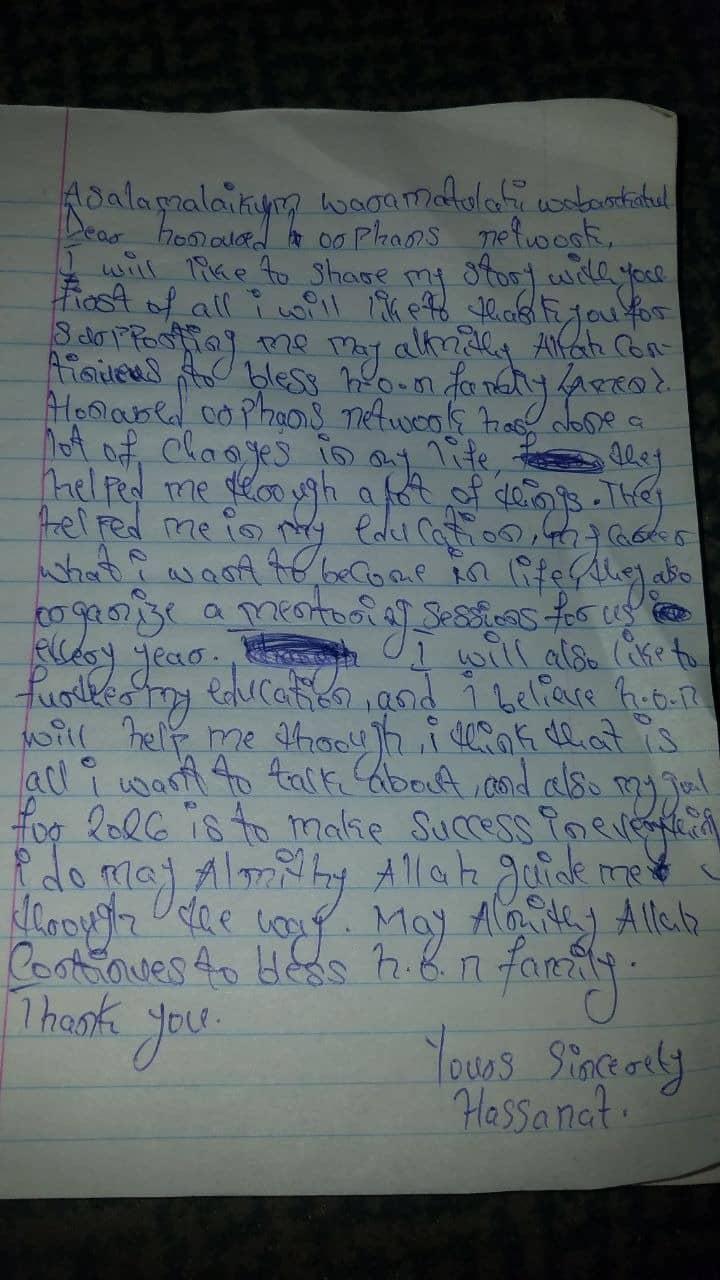 Asalamalaikum waramatulahi wabarakatul
Dear honoured orphans network,
I will like to share my story with you
first of all i will like to thank you for
supporting me may almithy Allah Con-
tinues to bless h.o.n family (Ameen).
Honored orphans network has done a
lot of changes in my life, they
helped me through a lot of things. They
helped me in my education, my career
what i want to become in life, they also
organize a mentoring sessions for us
every year. I will also like to
further my education, and i beliave h.o.n
will help me through, i think that is
all i want to talk about, and also my goal
for 2026 is to make success in everything
i do may Almithy Allah guide me
through the way. May Almithy Allah
Continues to bless h.o.n family.
Thank you.
Yours Sincerely
Hassanat.